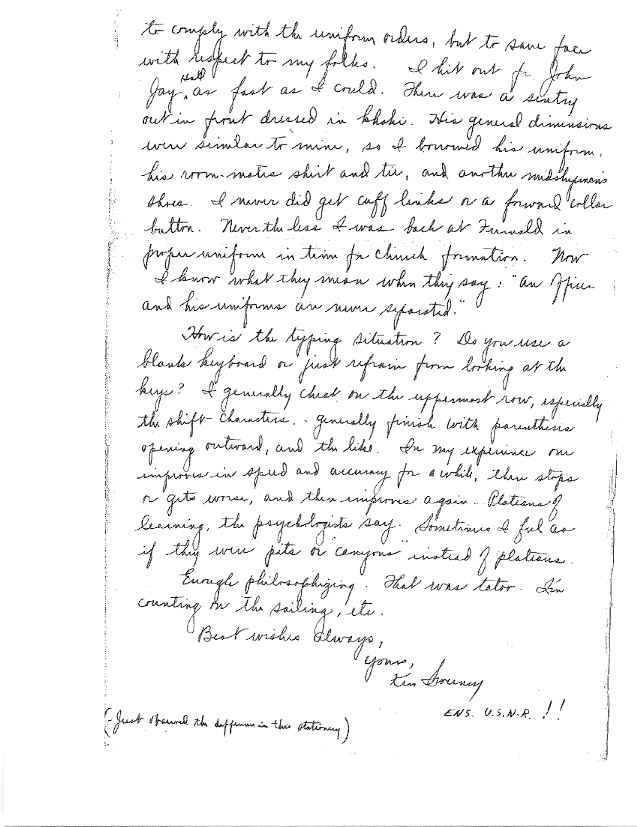 to comply with the uniform orders, but to save face
with respect to my folks. I hit out for John
Jay Hall as fast as I could. There was a sentry
out in front dressed in khaki. His general dimensions
were similar to mine, so I borrowed his uniform,
his room-mate's shirt and tie, and another midshipman's
shoes. I never did get cuff links or a forward collar
button. Never the less I was back at Furnald in
proper uniform in time for church formation. Now
I know what they mean when they say: "An Officer
and his uniforms are never separated."
How is the typing situation? Do you use a
blank keyboard or just refrain from looking at the
keys? I generally cheat on the uppermost row, especially
the shift characters. - generally finish with parenthesis
opening outward, and the like. In my experience one
improves in speed and accuracy for a while, then stops
or gets worse, and then improves again. Plateaus of
learning, the psychologists say. Sometimes I feel as
if they were pits or "canyons" instead of plateaus.
Enough philosophizing. That was tator. I'm
counting on the sailing, etc.
Best wishes always,
Yours,
Ken
ENS. U.S.N.R. !!
(- Just observed the difference in this stationery)